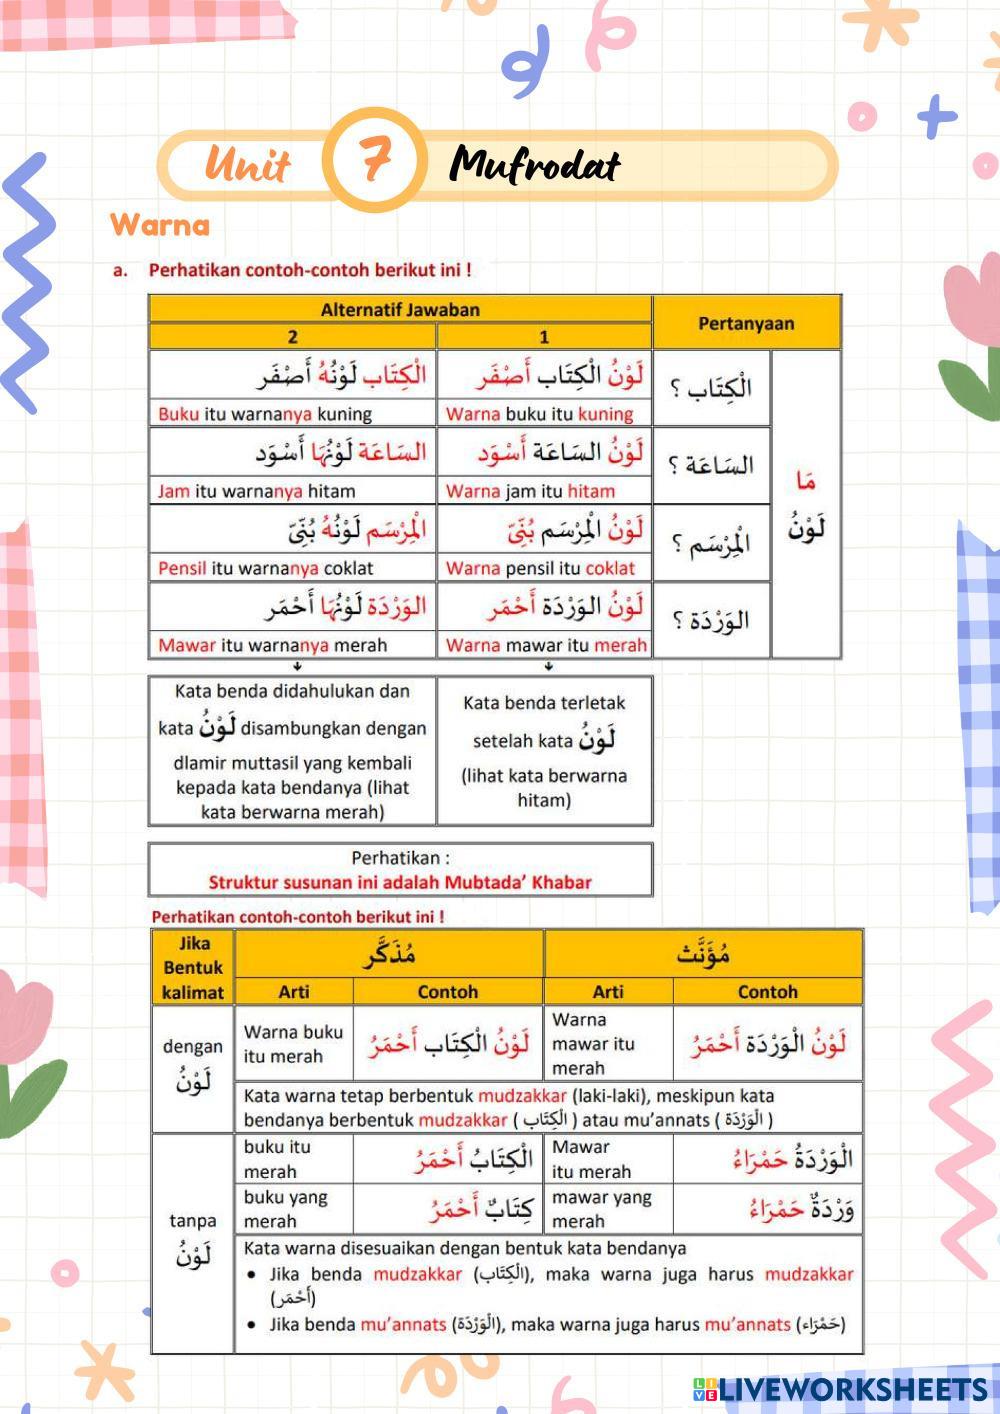 Unit 7 Mufrodat
Warna
a. Perhatikan contoh-contoh berikut ini !
Alternatif Jawaban
Pertanyaan
2
1
الْكِتَاب لَوْنُهُ أَصْفَر
لَوْنُ الْكِتَاب أَصْفَر
الْكِتَاب ؟
Buku itu warnanya kuning
Warna buku itu kuning
السَاعَة لَوْنُهَا أَسْوَد
لَوْنُ السَاعَة أَسْوَد
السَاعَة ؟
Jam itu warnanya hitam
Warna jam itu hitam
مَا
لَوْنُ
الْمِرْسَم لَوْنُهُ بُنِّيّ
لَوْنُ الْمِرْسَم بُنِّيّ
الْمِرْسَم ؟
Pensil itu warnanya coklat
Warna pensil itu coklat
الوَرْدَة لَوْنُهَا أَحْمَر
لَوْنُ الوَرْدَة أَحْمَر
الوَرْدَة ؟
Mawar itu warnanya merah
Warna mawar itu merah
Kata benda didahulukan dan
kata لَوْنُ disambungkan dengan
dlamir muttasil yang kembali
kepada kata bendanya (lihat
kata berwarna merah)
Kata benda terletak
setelah kata لَوْنُ
(lihat kata berwarna
hitam)
Perhatikan :
Struktur susunan ini adalah Mubtada’ Khabar
Perhatikan contoh-contoh berikut ini !
Jika
Bentuk
kalimat
مُذَكَّر
مُؤَنَّث
Arti
Contoh
Arti
Contoh
dengan
لَوْنُ
Warna buku
itu merah
لَوْنُ الْكِتَاب أَحْمَرُ
Warna
mawar itu
merah
لَوْنُ الْوَرْدَة أَحْمَرُ
Kata warna tetap berbentuk mudzakkar (laki-laki), meskipun kata
bendanya berbentuk mudzakkar ( الْكِتَاب ) atau mu’annats ( الْوَرْدَة )
tanpa
لَوْنُ
buku itu
merah
الْكِتَابُ أَحْمَرُ
Mawar
itu merah
الْوَرْدَةُ حَمْرَاءُ
buku yang
merah
كِتَابٌ أَحْمَرُ
mawar yang
merah
وَرْدَةٌ حَمْرَاءُ
Kata warna disesuaikan dengan bentuk kata bendanya
• Jika benda mudzakkar (الْكِتَاب), maka warna juga harus mudzakkar
(أَحْمَر)
• Jika benda mu’annats (الْوَرْدَة), maka warna juga harus mu’annats (حَمْرَاء)
LIVE LIVEWORKSHEETS